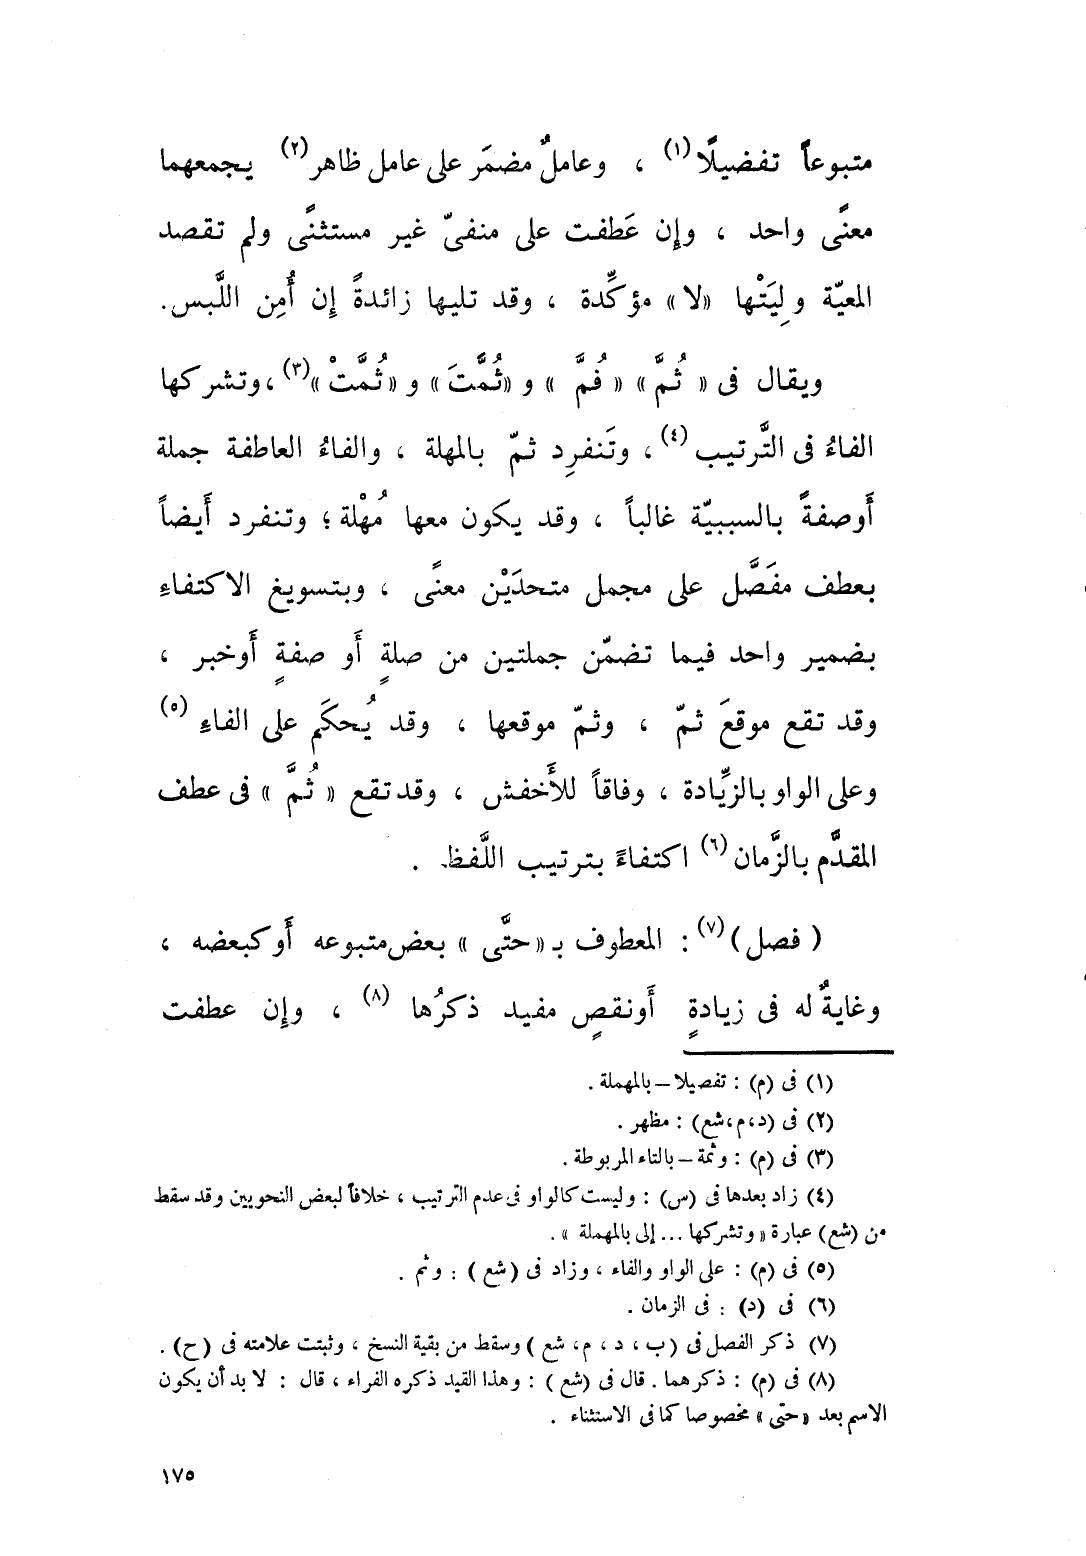 متبوعاً تفضيلًا(١) ، وعاملٌ مضمَر على عامل ظاهر(٢) يجمعهما
معنًى واحد ، وإن عَطفت على منفىّ غير مستثنًى ولم تقصد
المعيّة وليَتْها «لا» مؤكِّدة ، وقد تليها زائدةً إن أُمِن اللَّبس.
ويقال فى « ثُمَّ » « فُمَّ » و «ثُمَّتَ » و «ثُمَّتْ »(٣)، وتشركها
الفاءُ فى التَّرتيب(٤)، وتَنفرِد ثمّ بالمهلة ، والفاءُ العاطفة جملة
أَوصفةً بالسببيّة غالباً ، وقد يكون معها مُهْلة؛ وتنفرد أَيضاً
بعطف مفَصَّل على مجمل متحدَيْن معنًى ، وبتسويغ الاكتفاءِ
بضمير واحد فيما تضمّن جملتين من صلةٍ أَو صفةٍ أَوخبر ،
وقد تقع موقعَ ثمّ ، وثمّ موقعها ، وقد يُحكَم على الفاءِ (٥)
وعلى الواو بالزِّيادة ، وفاقاً للأَخفش ، وقد تقع « ثُمَّ » فى عطف
المقدَّم بالزَّمان(٦) اكتفاءً بترتيب اللَّفظ .
( فصل )(٧) : المعطوف بـ «حتَّى » بعض متبوعه أَو كبعضه ،
وغايةٌ له فى زيادةٍ أَونقصٍ مفيد ذكرُها (٨) ، وإن عطفت
(١) فى (م) : تفصيلا – بالمهملة .
(٢) فى (د،م،شع) : مظهر .
(٣) فى (م) : وثمة – بالتاء المربوطة .
(٤) زاد بعدها فى (س) : وليست كالواو فى عدم الترتيب ، خلافاً لبعض النحويين وقد سقط
من (شع) عبارة « وتشركها ... إلى بالمهملة » .
(٥) فى (م) : على الواو والفاء ، وزاد فى ( شع ) : وثم .
(٦) فى (د) : فى الزمان .
(٧) ذكر الفصل فى (ب ، د ، م، شع ) وسقط من بقية النسخ ، وثبتت علامته فى (ح) .
(٨) فى (م) : ذكرهما . قال فى (شع ) : وهذا القيد ذكره الفراء ، قال : لا بد أن يكون
الاسم بعد «حتى » مخصوصا كما فى الاستثناء .
١٧٥